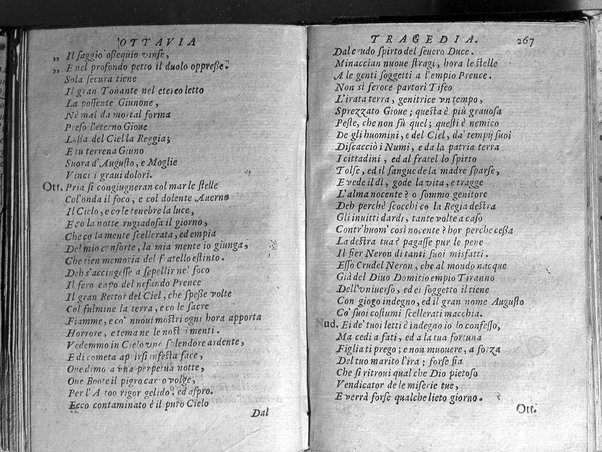 OTTAVIA
„ Il saggio ossequio vinse,
„ E nel profondo petto il duolo oppresse.
Sola secura tiene
Il gran Tonante nel etereo letto
La possente Giunone,
Nè mai da mortal forma
Preso l'eterno Gioue
Lassa del Ciel la Reggia;
E tu terrena Giuno
Suora d'Augusto, e Moglie
Vinci i graui dolori.
Ott. Pria si congiugneran col mar le stelle
Col'onda il foco, e col dolente Auerno
Il Cielo, e co le tenebre la luce,
E co la notte rugiadosa il giorno,
Che co la mente scellerata, ed empia
Del mio consorte, la mia mente io giunga,
Che tien memoria del fratello estinto.
Deh s'accingesse a sepellir nel foco
Il fero capo del nefando Prence
Il gran Rettor del Ciel, che spesse volte
Col fulmine la terra, e co le sacre
Fiamme, e co' nuoui mostri ogn hora apporta
Horrore, e tema ne le nostre menti.
Vedemmo in Cielo vno splendore ardente,
E di cometa aprirsi infesta face,
Oue dimo a vna perpetua notte,
Oue Boote il pigro carro volge,
Per l'Artoo rigor gelido, ed aspro.
Ecco contaminato è il puro Cielo
Dal
TRAGEDIA. 267
Dal crudo spirto del seuero Duce.
Minaccian nuoue stragi, hora le stelle
A le genti soggetti a l'empio Prence.
Non sì feroce partorì Tifeo
L'irata terra, genitrice vn tempo,
Sprezzato Gioue; questa è più grauosa
Peste, che non fù quel; questi è nemico
De gli huomini, e del Ciel, da' tempij suoi
Discacciò i Numi, e da la patria terra
I cittadini, ed al fratel lo spirto
Tolse, ed il sangue de la madre sparse,
E vede il dì, gode la vita, e tragge
L'alma nocente? o sommo genitore
Deh perche scocchi co la Regia destra
Gli inuitti dardi, tante volte a caso
Contr' huom' così nocente? hor perche cessa
La destra tua? pagasse pur le pene
Il fier Neron di tanti suoi misfatti.
Esso Crudel Neron, che al mondo nacque
Già del Diuo Domitio empio Tiranno
Dell'Vniuerso, ed ei soggetto il tiene
Con giogo indegno, ed il gran nome Augusto
Co' suoi costumi scellerati macchia.
Nud. Ei de' tuoi letti è indegno io lo confesso,
Ma cedi a fati, ed a la tua fortuna
Figlia ti prego; e non muouere, a forza
Del tuo marito l'ira; forse fia
Che si ritroui qualche Dio pietoso
Vendicator de le miserie tue,
E verrà forse qualche lieto giorno.
Ott.